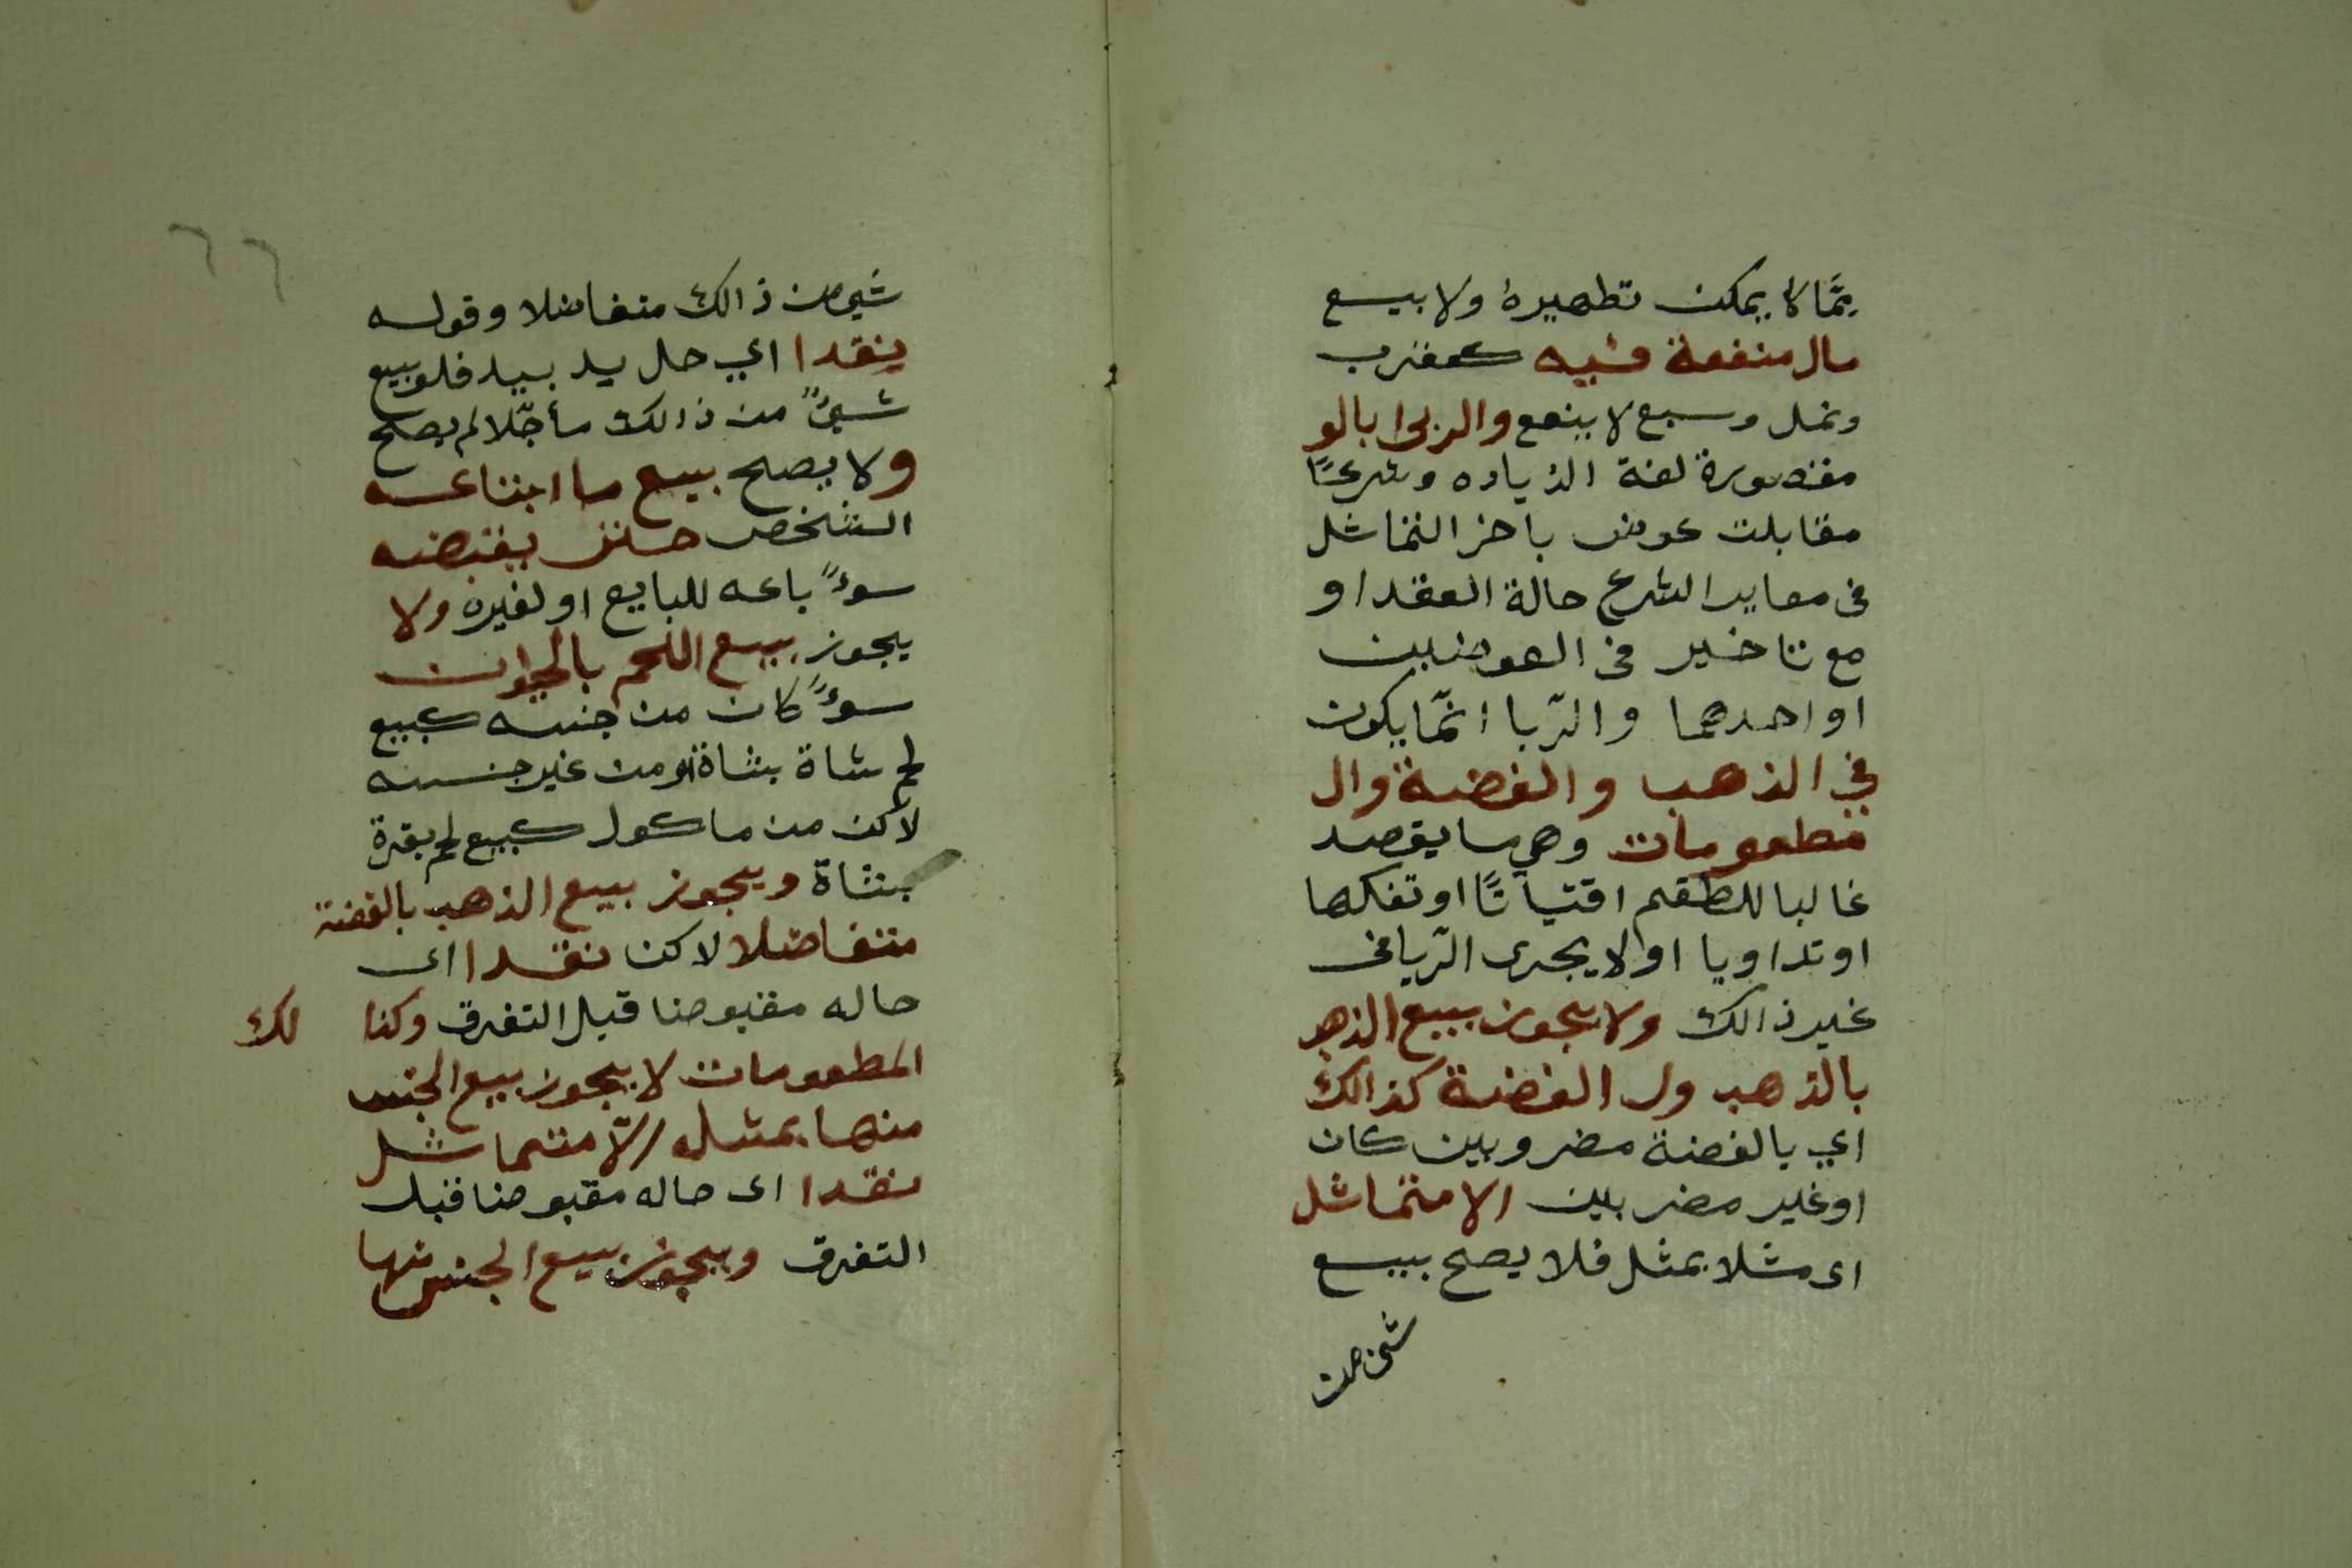 مِمَّا لا يمكن تطهيره ولا بيع
مال منفعة فيه كعقرب
ونمل وسبع لا ينفع والربىٰ بالو
مقصورة لغة الزياده وشرعًا
مقابلت عوض باخز التماثل
فى معاير الشرع حالة العقد او
مع تاخير فى العوضين
او احدهما والرّبا انّما يكون
في الذهب والفضة وال
مطعومات وهي ما يقصد
غالبا للطعم اقتياتًا او تفكها
او تداويا او لا يجرى الرّبا فى
غير ذالك ولا يجوز بيع الذهب
بالذهب ول الفضة كذالك
اي بالفضة مضروبين كان
او غير مضربين الا متماثل
اى مثلا بمثل فلا يصح بيع
شئ من
٦٦
شيئ من ذالك متفاضلا وقوله
ينقدا اي حل يد بيد فلو بيع
شيئ من ذالك مأجّلا لم يصح
ولا يصلح بيع ما ابتاعه
الشخص حتى يقبضه
سوءً باعه للبايع او لغيره ولا
يجوز بيع اللحم بالحيوان
سوءً كان من جنسه كبيع
لحم شاة بشاة او من غير جنسه
لاكن من ماكول كبيع لحم بقرة
بشاة ويجوز بيع الذهب بالفضة
متفاضلا لاكن نقدا اى
حاله مقبوضا قبل التفرق وكذا لك
المطعومات لا يجوز بيع الجنس
منها بمثله الّا متماثل
نقدا اى حاله مقبوضا قبل
التفرق ويجوز بيع الجنس منها